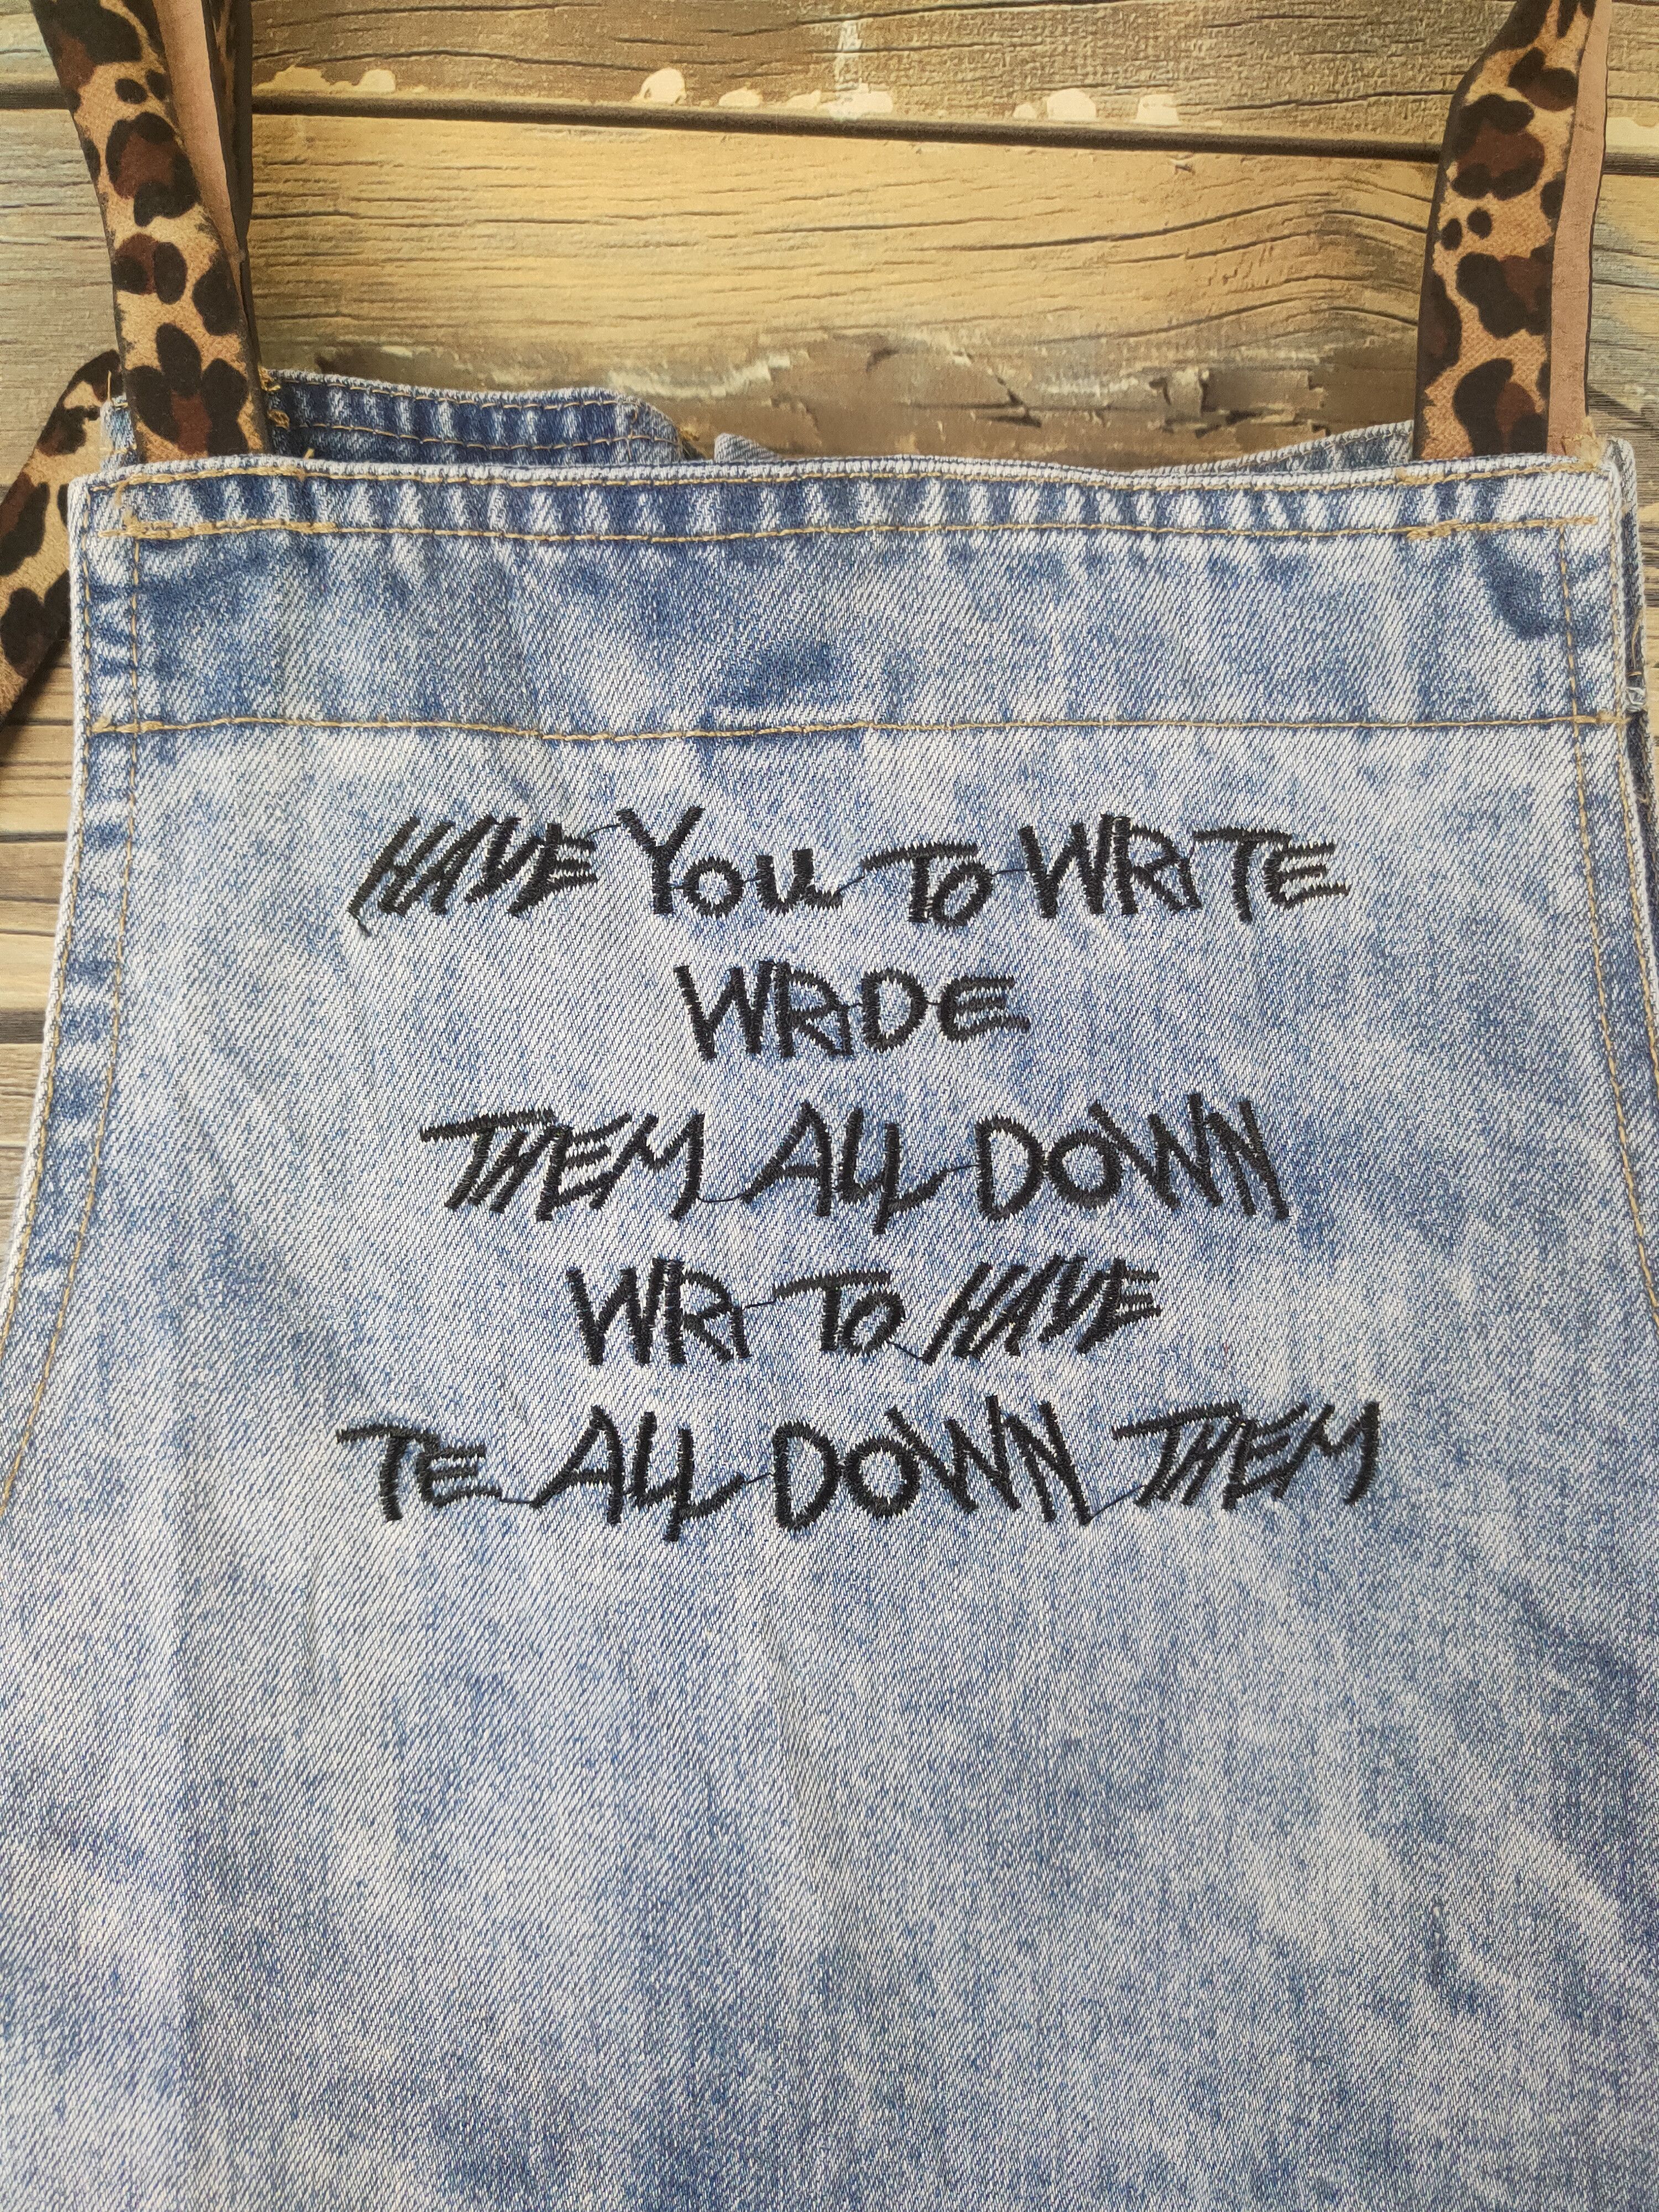 HAVE YOU TO WRITE
WRIDE
THEM ALL DOWN
WRI TO HAVE
TE ALL DOWN THEM